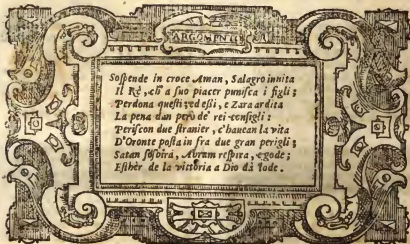 ARGOMENTO
Soſpende in croce Aman, Salagro inuita
Il Rè, ch'a ſuo piacer puniſca i figli;
Perdona queſti; ed eſſi, e Zara ardita
La pena dan però de' rei conſigli:
Periſcon due ſtranier, c'hauean la vita
D'Oronte poſta in fra due gran perigli;
Satan ſoſpira, Abram reſpira, e gode;
Eſthèr de la vittoria a Dio dà lode.